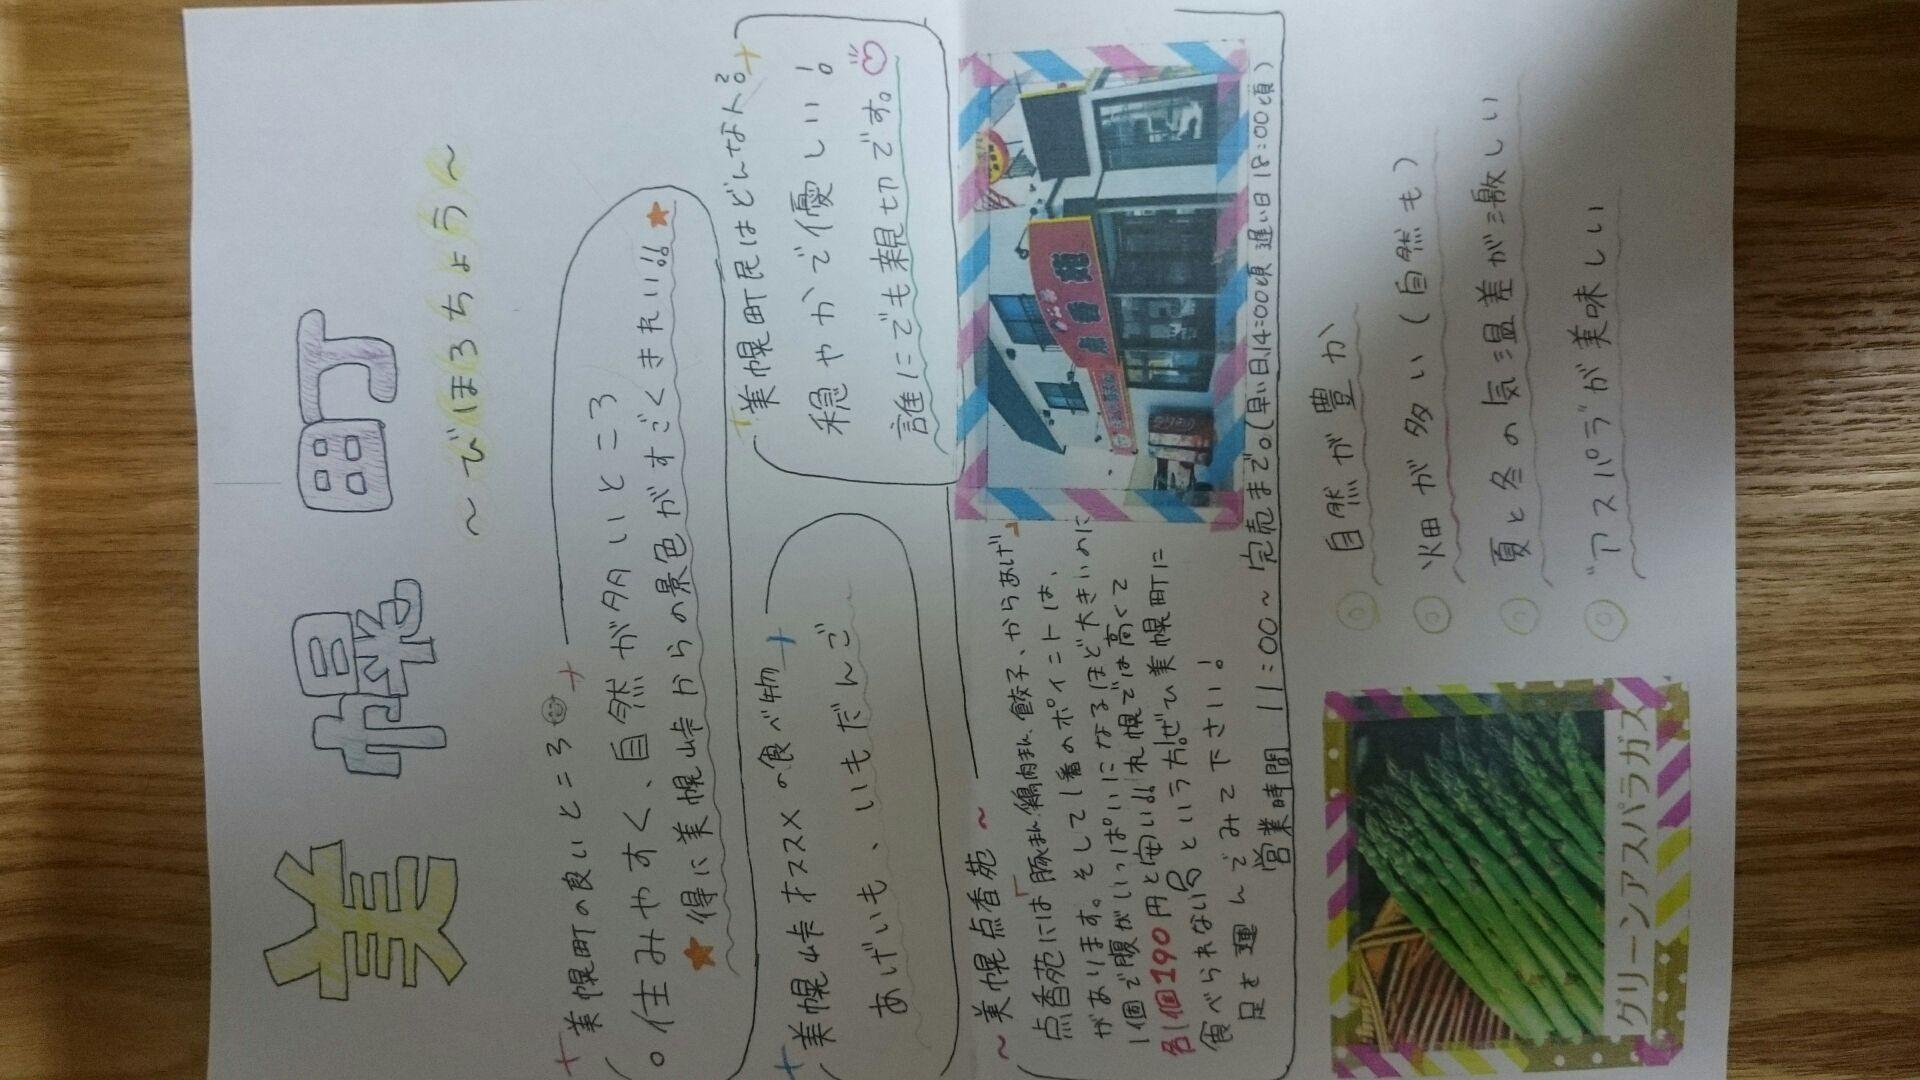 美幌町
～びほろちょう～
美幌町の良いところ
○住みやすく、自然が多いところ
得に美幌峠からの景色がすごくきれい!!
美幌町民はどんな人?
穏やかで優しい!
誰にでも親切です。
美幌峠オススメの食べ物
あげいも、いもだんご
～美幌点香苑～
点香苑には「豚まん、鶏肉まん、餃子、からあげ」
があります。そして1番のポイントは、
1個で腹がいっぱいになるほど大きいのに
各1個190円と安い!!札幌では高くて
食べられないという方。ぜひ美幌町に
足を運んでみて下さい!
営業時間 11:00～完売まで。(早い日、14:00頃 遅い日 18:00頃)
点香苑
◎自然が豊か
◎畑が多い(自然も)
◎夏と冬の気温差が激しい
◎"アスパラ"が美味しい
グリーンアスパラガス